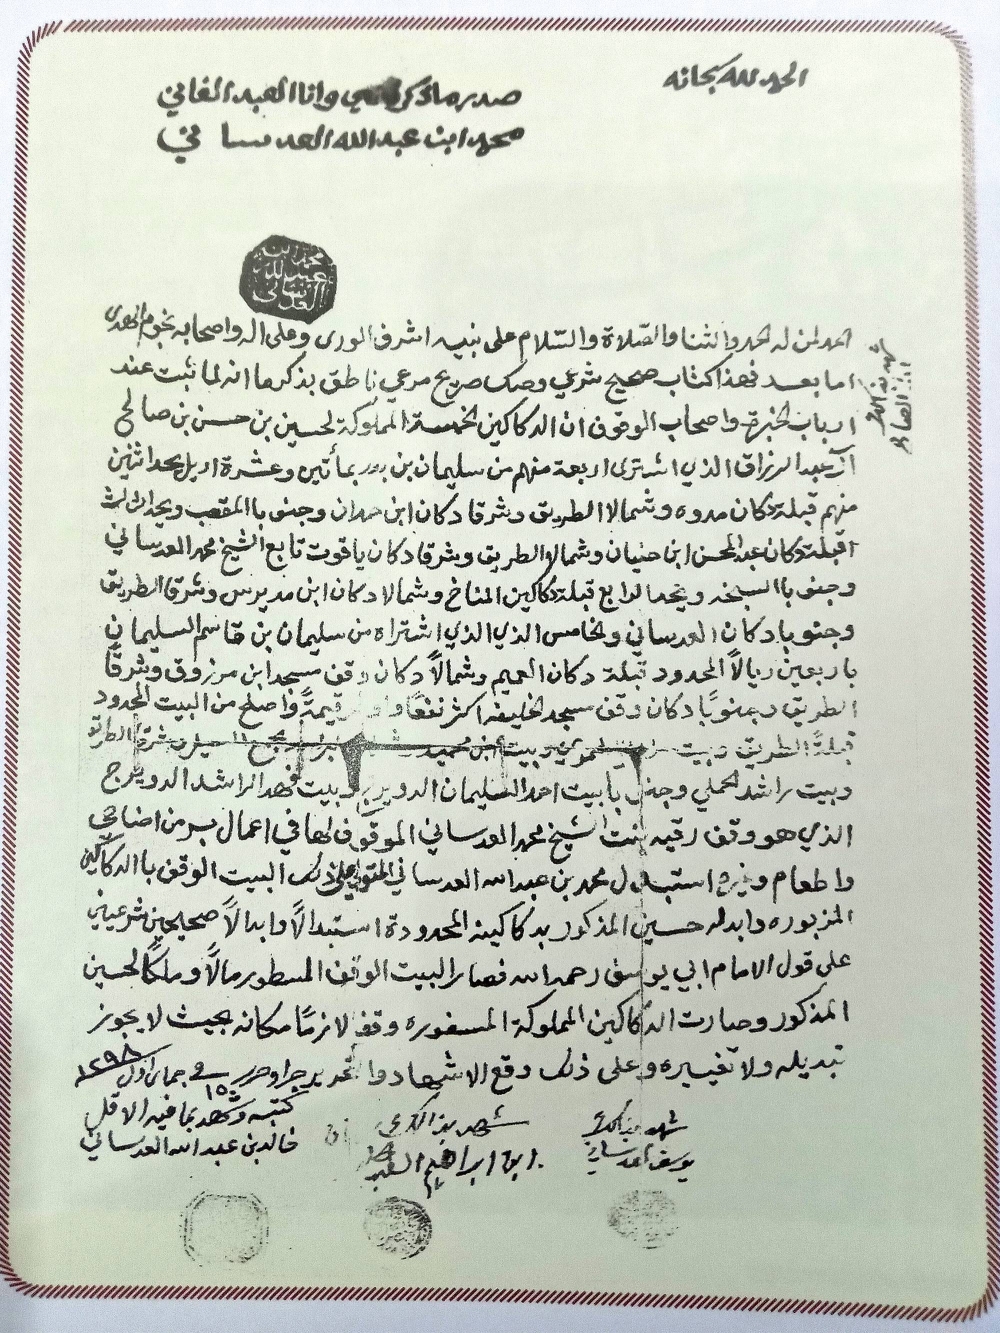 الحمد لله سبحانه
صدر ما ذكر وانا العبد الفاني
محمد ابن عبدالله العدساني
محمد بن
عبدالله
العدساني
احمد لمن له الحمد والثنا والصلاة والسلام على نبيه اشرف الورى وعلى اله واصحابه نجوم الهدى
اما بعد فهذا كتاب صحيح شرعي وصك صريح مرعي ناطق بذكر ما انه لما ثبت عند
ارباب الخبرة واصحاب الوقوف ان الدكاكين الخمسة المملوكة لحسين بن حسن بن صالح
آل عبد الرزاق الذي اشترى اربعة منهم من سليمان بن بدر بمأتين وعشرة اريل يحد اثنين
منهم قبلة دكان مدوه وشمالا الطريق وشرقا دكان ابن حمدان وجنوبا المقصب ويحد الثالث
اقبلة دكان عبد المحسن ابن حنيان وشمالا الطريق وشرقا دكان ياقوت تابع الشيخ محمد العدساني
وجنوبا السبخه ويحد الرابع قبلة دكاكين المناخ وشمالا دكان ابن مديرس وشرقا الطريق
وجنوبا دكان العدساني والخامس الذي الذي اشتراه من سليمان بن قاسم السليمان
باربعين ريالاً المحدود قبلة دكان العميم وشمالاً دكان وقف مسجد ابن مرزوق وشرقاً
الطريق وجنوبًا دكان وقف مسجد الخليفه اكثر نفعًا قيمةً واصلح من البيت المحدود
قبلةً الطريق وبيت وبيت ابن شرقا الطريق
وبيت راشد الحملي وجنوبا بيت احمد السليمان الدويرج وبيت فهد الراشد الدويرج
الذي هو وقف رقيه بنت الشيخ محمد العدساني الموقوف لها في اعمال بر من اضاحي
واطعام وغيره استبدل محمد بن عبدالله العدساني المتولي على ذلك البيت الوقف با الدكاكين
المزبوره وابدله حسين المذكور بدكاكينه المحدودة استبدالاً وابدالاً صحيحين شرعيين
على قول الامام ابي يوسف رحمه الله فصار البيت الوقف المسطور مالاً وملكًا لحسين
المذكور وصارت الدكاكين المملوكة المسفوره وقفا لازمًا مكانه بحيث لا يجوز
تبديله ولا تغييره وعلى ذلك وقع الاشهاد والتحرير جرا وحرر في ١٥ جمادى اول ١٢٩٨
كتبه وشهد بما فيه الاقل
خالد بن عبدالله العدساني
شهد بذالك
ابن ابراهيم
شهد بذالك
يوسف العدساني